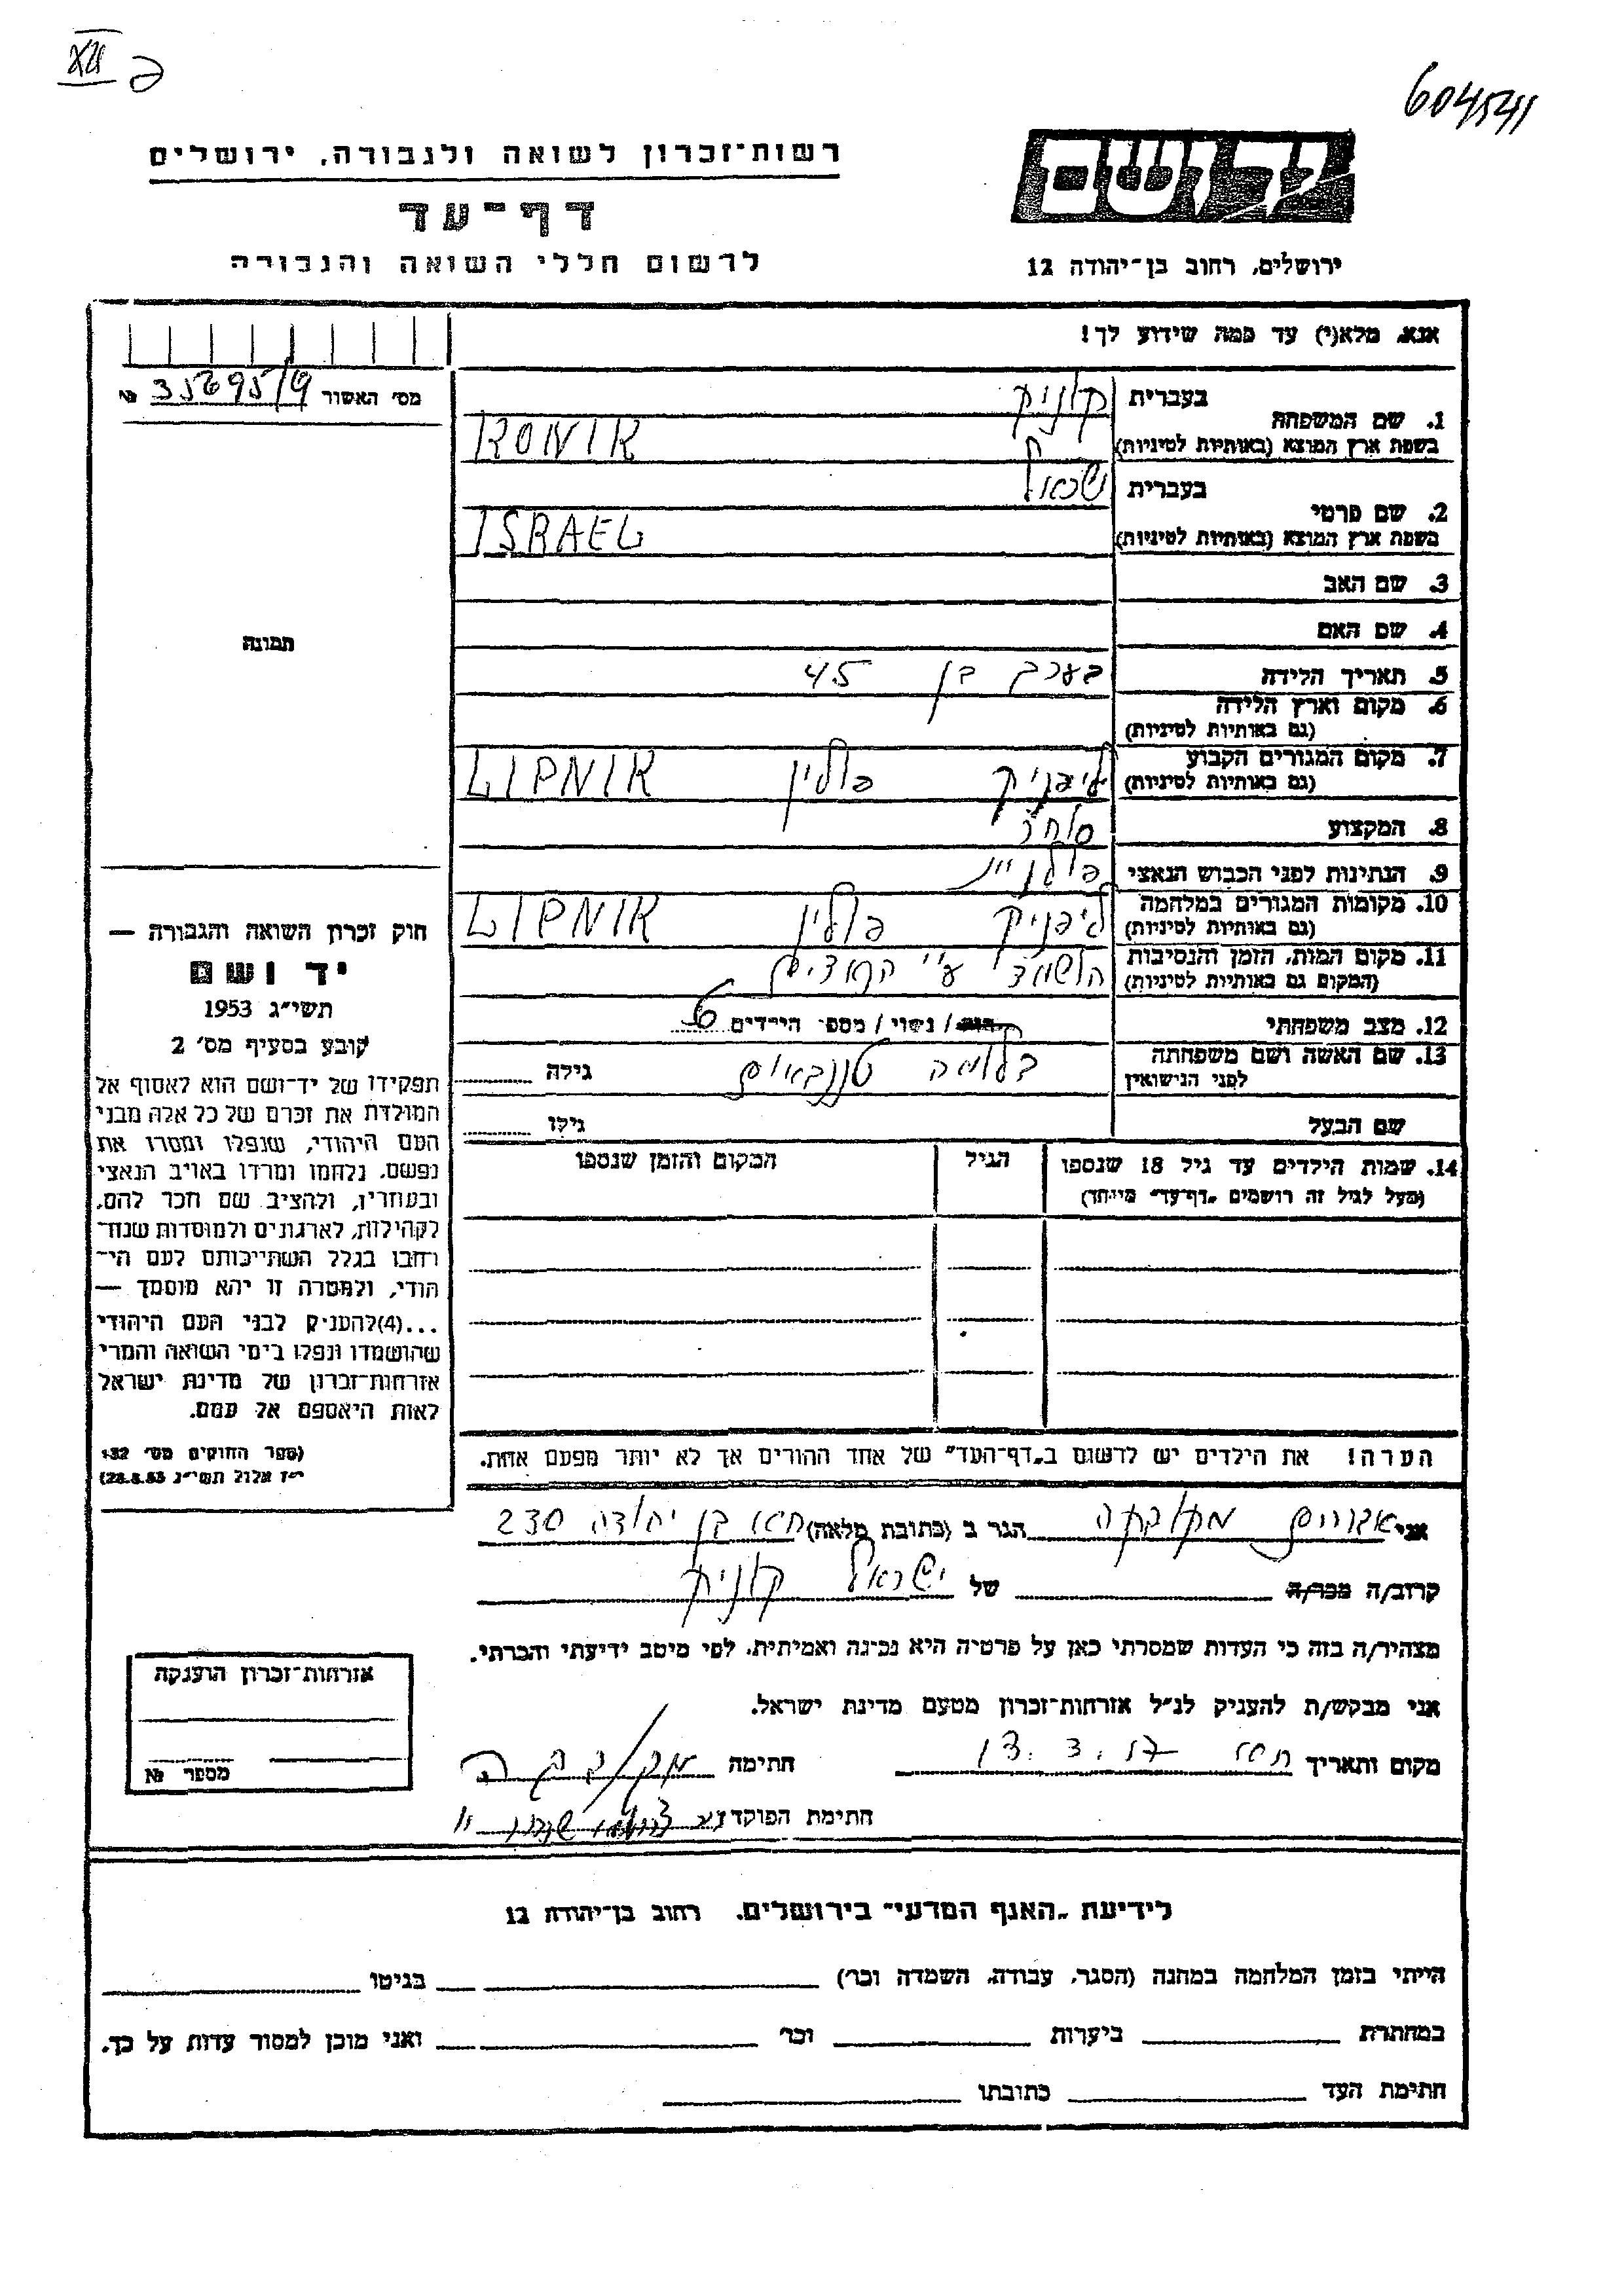 XII
604541
רשות־זכרון לשואה ולגבורה, ירושלים
דף־עד
לרשום חללי השואה והגבורה
יד ושם
ירושלים, רחוב בן־יהודה 12
אנא, מלא(י) עד כמה שידוע לך!
מס׳ האשור 35695/9 №
1. שם המשפחה בעברית קוניק
בשפת ארץ המוצא (באותיות לטיניות) KONIK
2. שם פרטי בעברית ישראל
בשפת ארץ המוצא (באותיות לטיניות) ISRAEL
3. שם האב
4. שם האם
5. תאריך הלידה בערך בן 45
6. מקום וארץ הלידה
(גם באותיות לטיניות)
7. מקום המגורים הקבוע ליפניק פולין LIPNIK
(גם באותיות לטיניות)
8. המקצוע סוחר
9. הנתינות לפני הכבוש הנאצי פולנית
10. מקומות המגורים במלחמה ליפניק פולין LIPNIK
(גם באותיות לטיניות)
11. מקום המות, הזמן והנסיבות הושמד ע״י הנאצים
(המקום גם באותיות לטיניות)
12. מצב משפחתי רווק / נשוי / מספ׳ הילדים 6
13. שם האשה ושם משפחתה בלומה טננבאום גילה
לפני הנישואין
שם הבעל גילו
14. שמות הילדים עד גיל 18 שנספו הגיל המקום והזמן שנספו
(מעל לגיל זה רושמים „דף־עד״ מיוחד)
הערה! את הילדים יש לרשום ב„דף־העד״ של אחד ההורים אך לא יותר מפעם אחת.
תמונה
חוק זכרון השואה והגבורה —
יד ושם
תשי״ג 1953
קובע בסעיף מס׳ 2
תפקידו של יד־ושם הוא לאסוף אל
המולדת את זכרם של כל אלה מבני
העם היהודי, שנפלו ומסרו את
נפשם, נלחמו ומרדו באויב הנאצי
ובעוזריו, ולהציב שם וזכר להם,
לקהילות, לארגונים ולמוסדות שנח־
רבו בגלל השתייכותם לעם הי־
הודי, ולמטרה זו יהא מוסמך —
...(4)להעניק לבני העם היהודי
שהושמדו ונפלו בימי השואה והמרי
אזרחות־זכרון של מדינת ישראל
לאות היאספם אל עמם.
(ספר החוקים מס׳ 132
י״ז אלול תשי״ג 28.8.53)
אני מקובקה הגר ב (כתובת מלאה) בן יהודה 230
קרוב/ה מכר/ה של ישראל קוניק
מצהיר/ה בזה כי העדות שמסרתי כאן על פרטיה היא נכונה ואמיתית, לפי מיטב ידיעתי והכרתי.
אני מבקש/ת להעניק לנ״ל אזרחות־זכרון מטעם מדינת ישראל.
מקום ותאריך חתימה
חתימת הפוקד
אזרחות־זכרון הוענקה
מספר №
לידיעת „האגף המדעי״ בירושלים, רחוב בן־יהודה 12
הייתי בזמן המלחמה במחנה (הסגר, עבודה, השמדה וכו׳) בגיטו
במחתרת ביערות וכו׳ ואני מוכן למסור עדות על כך.
חתימת העד כתובתו